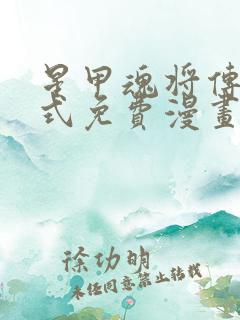 星甲魂将傳
式免費漫畫
徐功明
未经同意禁止转载